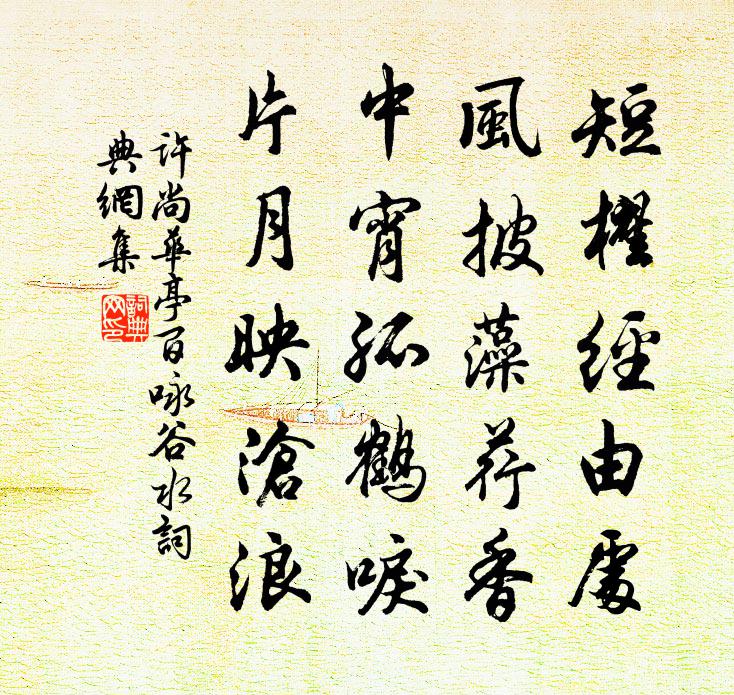 短櫂經由處
風披藻荇香
中宵孤鶴唳
片月映滄浪
許尚華亭百咏谷水詞
典網集
詞典網印